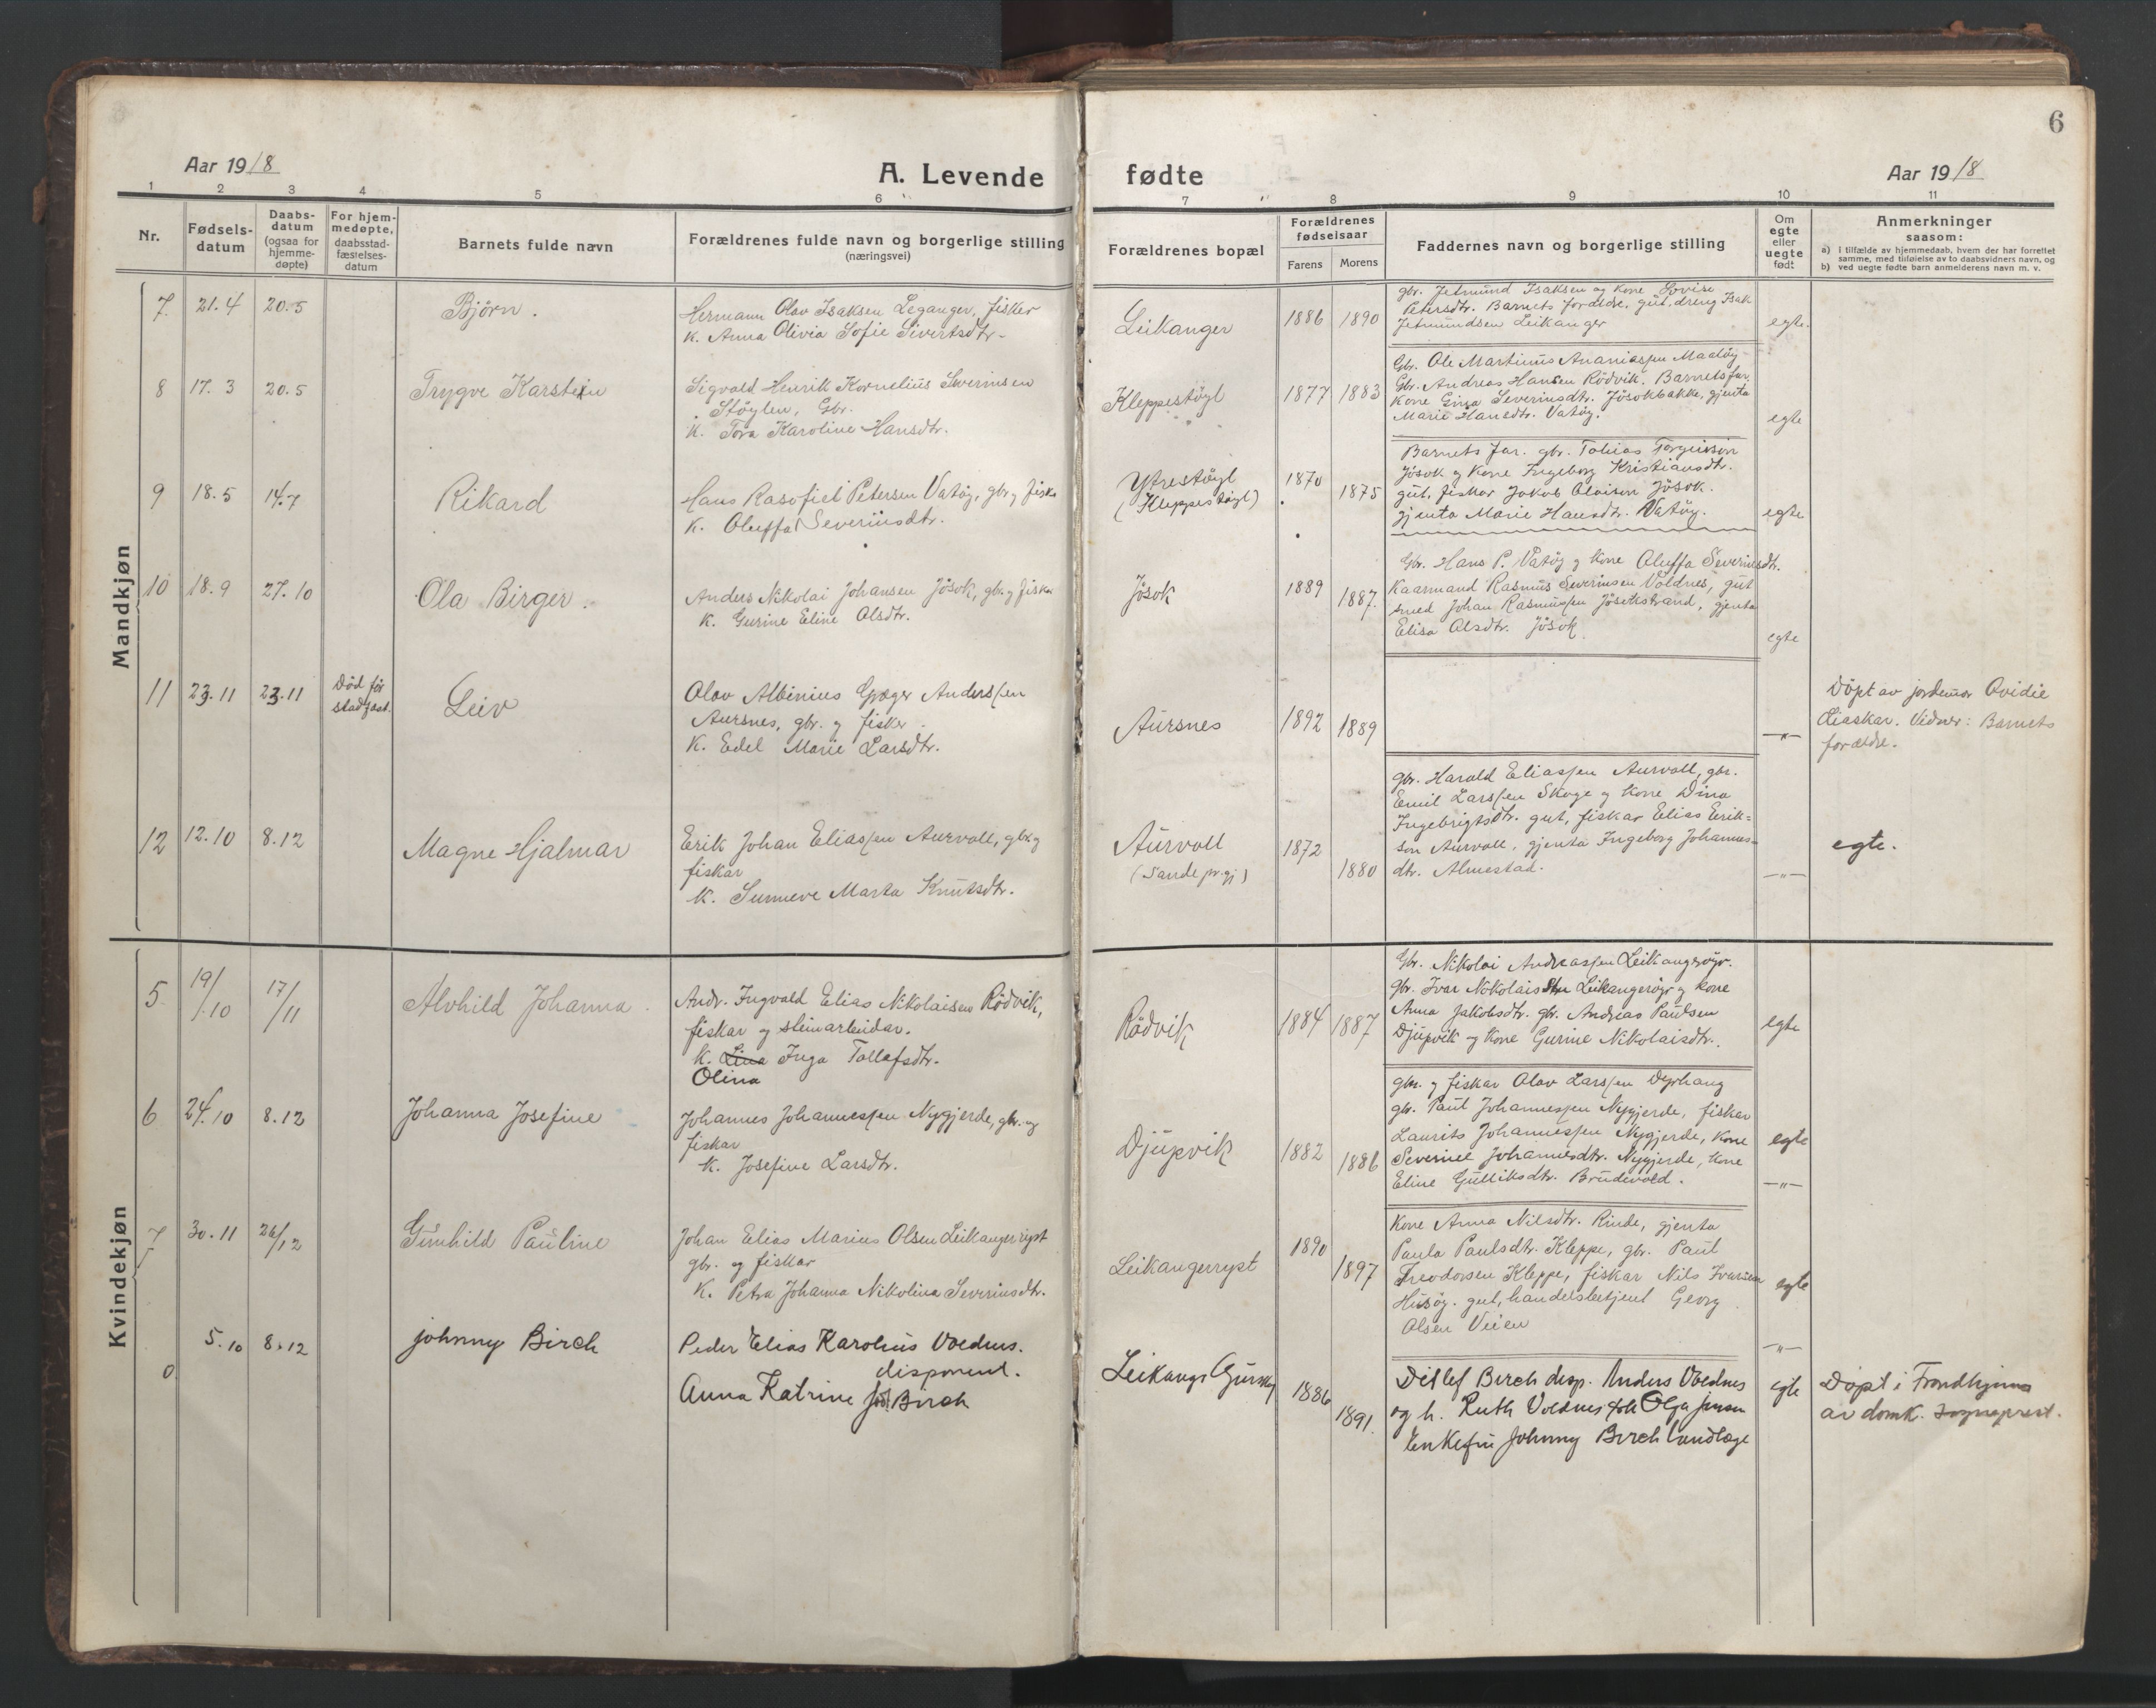 6
Aar 1918
A. Levende fødte
Aar 1918
1 2 3 4 5 6 7 8 9 10 11
Nr.
Fødsels-
datum
Daabs-
datum
(ogsaa for
hjemme-
døpte)
For hjem-
medøpte,
daabsstad-
fæstelses-
datum
Barnets fulde navn
Forældrenes fulde navn og borgerlige stilling
(næringsvei)
Forældrenes bopæl
Forældrenes
fødselsaar
Farens
Morens
Faddernes navn og borgerlige stilling
Om
egte
eller
uegte
født
Anmerkninger
saasom:
a) i tilfælde av hjemmedaab, hvem der har forrettet
samme, med tilføielse av to daabsvidners navn, og
b) ved uegte fødte barn anmelderens navn m. v.
Mandkjøn
7. 21.4 20.5
Bjørn.
Hermann Olav Isaksen Leganger, fisker
K. Anna Olivia Sofie Sivertsdtr.
Leikanger
1886 1890
gbr. Jetmund Isaksen og kone Lovise
Petersdtr. Barnets forældre, gut, dreng Isak
Jetmundsen Leikanger
egte.
8 17.3 20.5
Trygve Karstein
Sigvald Henrik Kornelius Severinsen
Støylen, Gbr.
K. Tora Karoline Hansdtr.
Kleppestøyl
1877 1883
Gbr. Ole Martinus Ananiassen Maatøy
Gbr. Andreas Hansen Rödvik. Barnets far,
Kone Gina Severinsdtr. Jøsokbakke, gjenta
Marie Hansdtr. Vatøy.
egte
9 18.5 14.7
Rikard
Hans Rasofiel Petersen Vatøy, gbr. y fisker
K. Oluffa Severinsdtr.
Ytrestøyl
(Kleppestøyl)
1870 1875
Barnets far. gbr. Tobias Torgeirson
Jøsok y kone Ingeborg Kristiansdtr.
gut, fiskar Jakob Olaison Jøsok.
gjenta Marie Hansdtr. Vatøy.
egte
10 18.9 27.10
Ola Birger.
Anders Nikolai Johansen Jøsok, gbr. y fiskar
K. Gurine Eline Olsdtr.
Jøsok
1889 1887.
Gbr. Hans P. Vatøy y kone Oluffa Severinsdtr.
Kaarmand Rasmus Severinsen Voldnes, gut
smed Johan Rasmussen Jøsokstrand, gjenta
Elisa Olsdtr. Jøsok
egte
11 23.11 23.11
Død før
stadfæst.
Leiv
Olav Albinius Græger Anderssen
Aursnes, gbr. y fisker.
K. Edel Marie Larsdtr.
Aursnes
1892 1889
—"—
Døpt av jordmor Ovidie
Liaskar. Vidner: Barnets
forældre.
12 12.10 8.12
Magne Hjalmar
Erik Johan Eliassen Aurvoll, gbr. y
fiskar
K. Sunneve Marta Knutsdtr.
Aurvoll
(Sande pr.gj)
1872 1880
gbr. Harald Eliassen Aurvoll, gbr.
Emil Larssen Skoge y kone Dina
Ingebrigtsdtr. gut, fiskar Elias Erik=
sen Aurvoll, gjenta Ingeborg Johannes-
dtr. Almestad.
—"—
egte.
Kvindekjøn
5. 19/10 17/11
Alvhild Johanna.
Andr. Ingvald Elias Nikolaisen Rødvik,
fiskar y steinarbeidar.
K. Lina Inga Tollefsdtr.
Olina
Rødvik
1884 1887
Gbr. Nikolai Andreassen Leikangerøyr.
Gbr. Ivar Nikolaisen Leikangerøyr y kone
Anna Jakobsdtr. gbr. Andreas Paulsen
Djupvik y kone Gurine Nikolaisdtr.
egte
6 24.10 8.12
Johanna Josefine
Johannes Johannessen Nygjerde, gbr. og
fiskar
K. Josefine Larsdtr.
Djupvik
1882 1886
gbr. y fiskar Olav Larssen Dyrhaug
gbr. Paul Johannessen Nygjerde, fiskar
Laurits Johannessen Nygjerde, kone
Severine Johannesdtr. Nygjerde, kone
Eline Gulliksdtr. Brudevold.
egte
—"—
7 30.11 26/12
Gunhild Pauline
Johan Elias Marius Olsen Leikangerryst
gbr. og fiskar
K. Petra Johanna Nikolina Severinsdtr.
Leikangerryst
1890 1897
Kone Anna Nilsdtr. Rinde, gjenta
Paula Paulsdtr. Kleppe, gbr. Paul
Treodorsen Kleppe, fiskar Nils Ivarsen
Husøy. gut, handelsbetjent Georg
Olsen Veien
egte
—"—
0 5.10 8.12
Johnny Birch
Peder Elias Karolius Voldnes.
disponent.
Anna Katrine fød Birch
Leikangr Gurskøy
1886 1891.
Ditlef Birch disp. Anders Voldnes
og h. Ruth Voldnes frk Olga Jensen
Enkefru Johnny Birch
egte
Døpt i Trondhjem
av domk. Sogneprest.